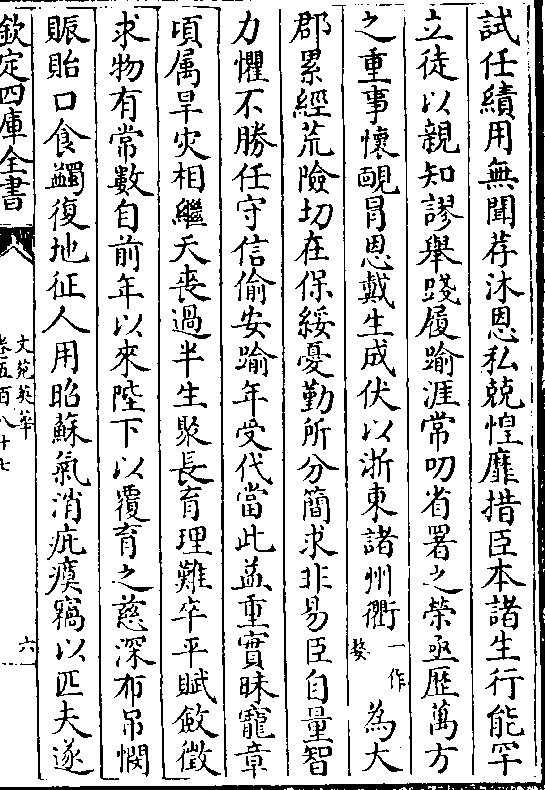 試任績用無聞荐沐恩私兢惶靡措臣本諸生行能罕
立徒以親知謬舉踐履踰涯常叨省署之榮亟歷萬方
之重事懐靦冒恩戴生成伏以浙東諸州衢一作婺為大
郡累經荒險切在保綏憂勤所分簡求非易臣自量智
力懼不勝任守信偷安踰年受代當此益重實昧寵章
頃属旱灾相繼天喪過半生聚長育理難卒平賦斂徵
求物有常數自前年以來陛下以覆育之慈深布吊憫
賑貽口食蠲復地征人用昭蘇氣消疵癘竊以匹夫遂
欽定四庫全書
文苑英華
卷五百八十七
六